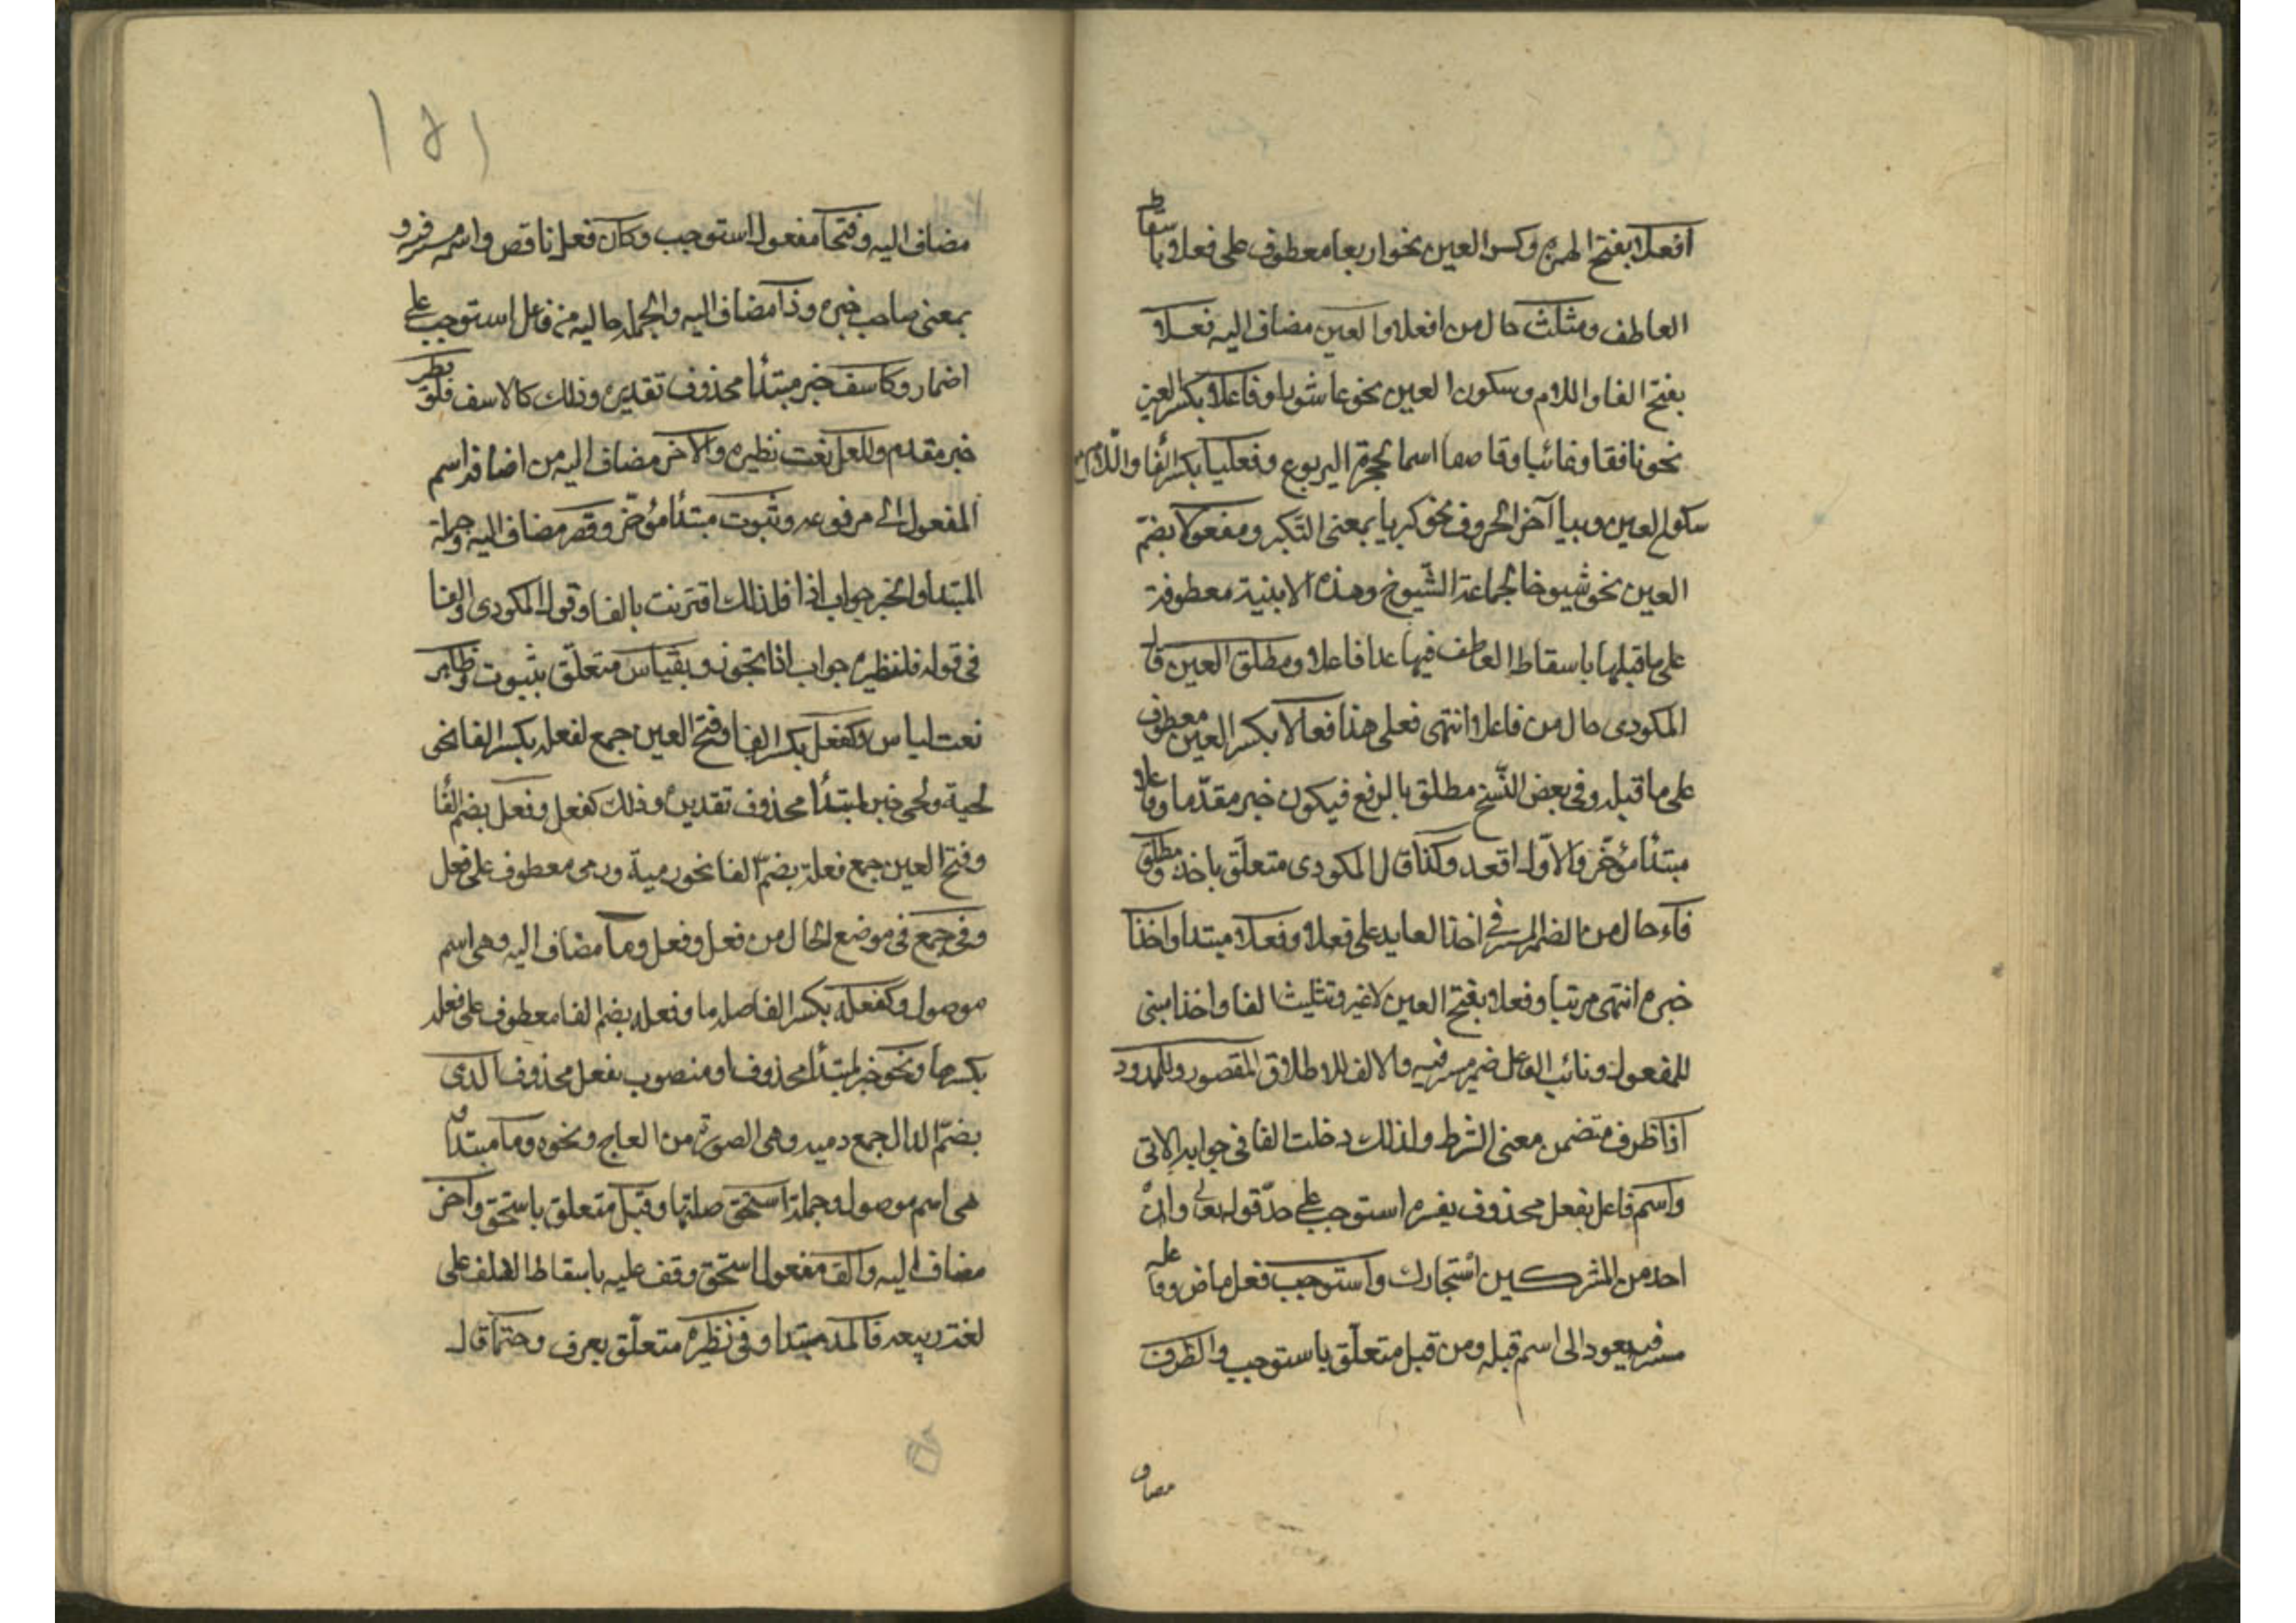 افعلاء بفتح الهمزة وكسر العين نحو اربعا معطوف على فعلاء باسقاط
العاطف ومثلث حال من افعلاء والعين مضاف اليه فعللا
بفتح الفا واللام وسكون العين نحو عاشورا وفاعلا بكسر العين
نحو نافقا وغائبا وقاصعا اسما لجحرة اليربوع وفعليا بكسر الفا واللام مع
سكون العين وبيا آخر الحروف نحو كبريا بمعنى التكبر ومفعولا بضم
العين نحو شيوخا لجماعة الشيوخ وهذه الابنية معطوفة
على ما قبلها باسقاط العاطف فيها عدا فاعلا ومطلق العين قال
المكودى حال من فاعلا انتهى فعلى هذا فعالا بكسر العين معطوف
على ما قبله وفى بعض النسخ مطلق بالرفع فيكون خبر مقدما وفاعلا
مبتدأ مؤخر والاول اقعد وكذا قال المكودى متعلق باخذ ومطلق
فاء حال من الضمير المستتر فى اخذا العايد على فعلا وفعلا مبتدا واخذا
خبره انتهى مرتبا وفعلا بفتح العين لا غير وتثليث الفا واخذا مبنى
للمفعول ونائب الفاعل ضمير مستتر فيه والالف للاطلاق المقصور والممدود
اذا ظرف متضمن معنى الشرط ولذلك دخلت الفا فى جوابه الاتى
واسم فاعل بفعل محذوف يفسره استوجب على حد قوله تعالى وان
احد من المشركين استجارك واستوجب فعل ماض وفاعله
مستتر فيه يعود الى اسم قبله ومن قبل متعلق باستوجب والظرف
مضاف
١٥١
مضاف اليه وفتحا مفعول استوجب وكان فعل ناقص واسمه مستتر فيه وذو
بمعنى صاحب خبره وذا مضاف اليه والجملة حاليه من فاعل استوجب على
اضمار وكاسف خبر مبتدأ محذوف تقديره وذلك كالاسف فلنظيره
خبر مقدم والمعل نعت نظيره والآخر مضاف اليه من اضافة اسم
المفعول الى مرفوعه وثبوت مبتدأ مؤخر وقصر مضاف اليه وجملة
المبتدأ والخبر جواب اذا فلذلك اقترنت بالفا وقول المكودى والفا
فى قوله فلنظيره جواب اذا تجوز وبقياس متعلق بثبوت وظاهر
نعت لقياس وكفعل بكسر الفا وفتح العين جمع لفعله بكسر الفا نحو
لحية ولحى خبر لمبتدأ محذوف تقديره وذلك كفعل وفعل بضم الفا
وفتح العين جمع فعلة بضم الفا نحو رمية ورمى معطوف على فعل
وفى جمع فى موضع الحال من فعل وفعل وما مضاف اليه وهى اسم
موصول وكفعلة بكسر الفا صلة ما وفعله بضم الفا معطوف على فعله
بكسرها ونحو خبر لمبتدأ محذوف او منصوب بفعل محذوف الدمى
بضم الدال جمع دميه وهى الصورة من العاج ونحوه وما مبتدا و
هى اسم موصول وجملة استحق صلتها وقبل متعلق باستحق وآخر
مضاف اليه والف مفعول استحق وقف عليه باسقاط الالف على
لغة ربيعه فالمد مبتدا وفى نظيره متعلق بعرف وحتما قال